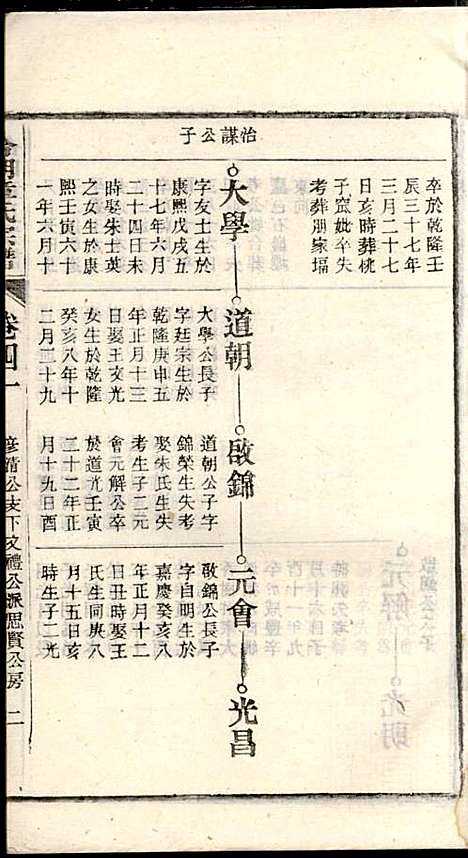 卒於乾隆壬
辰三十七年
三月二十七
日亥時葬桃
子窩妣辛失
考葬朋家塥
怡謀公子
大學
道朝
啟錦
元會
光昌
字友士生於
康熙戊戌五
十七年六月
二十四日未
時娶朱士英
之女生於康
熙壬寅六十
一年六月十
大學公長子
字廷宗生於
乾隆庚申五
年正月十三
日娶王文光
女生於乾隆
癸亥八年十
二月二十九
道朝公子字
錦榮生失考
娶朱氏生失
考生子二元
會元解公卒
於道光壬寅
二十二年正
月十九日酉
啟錦公長子
字自明生於
嘉慶癸亥八
年正月十二
日丑時娶王
氏生同庚八
月十五日亥
時生子二光
氏宗譜
卷四一
彦清公支下文禮公派思賢公房
二